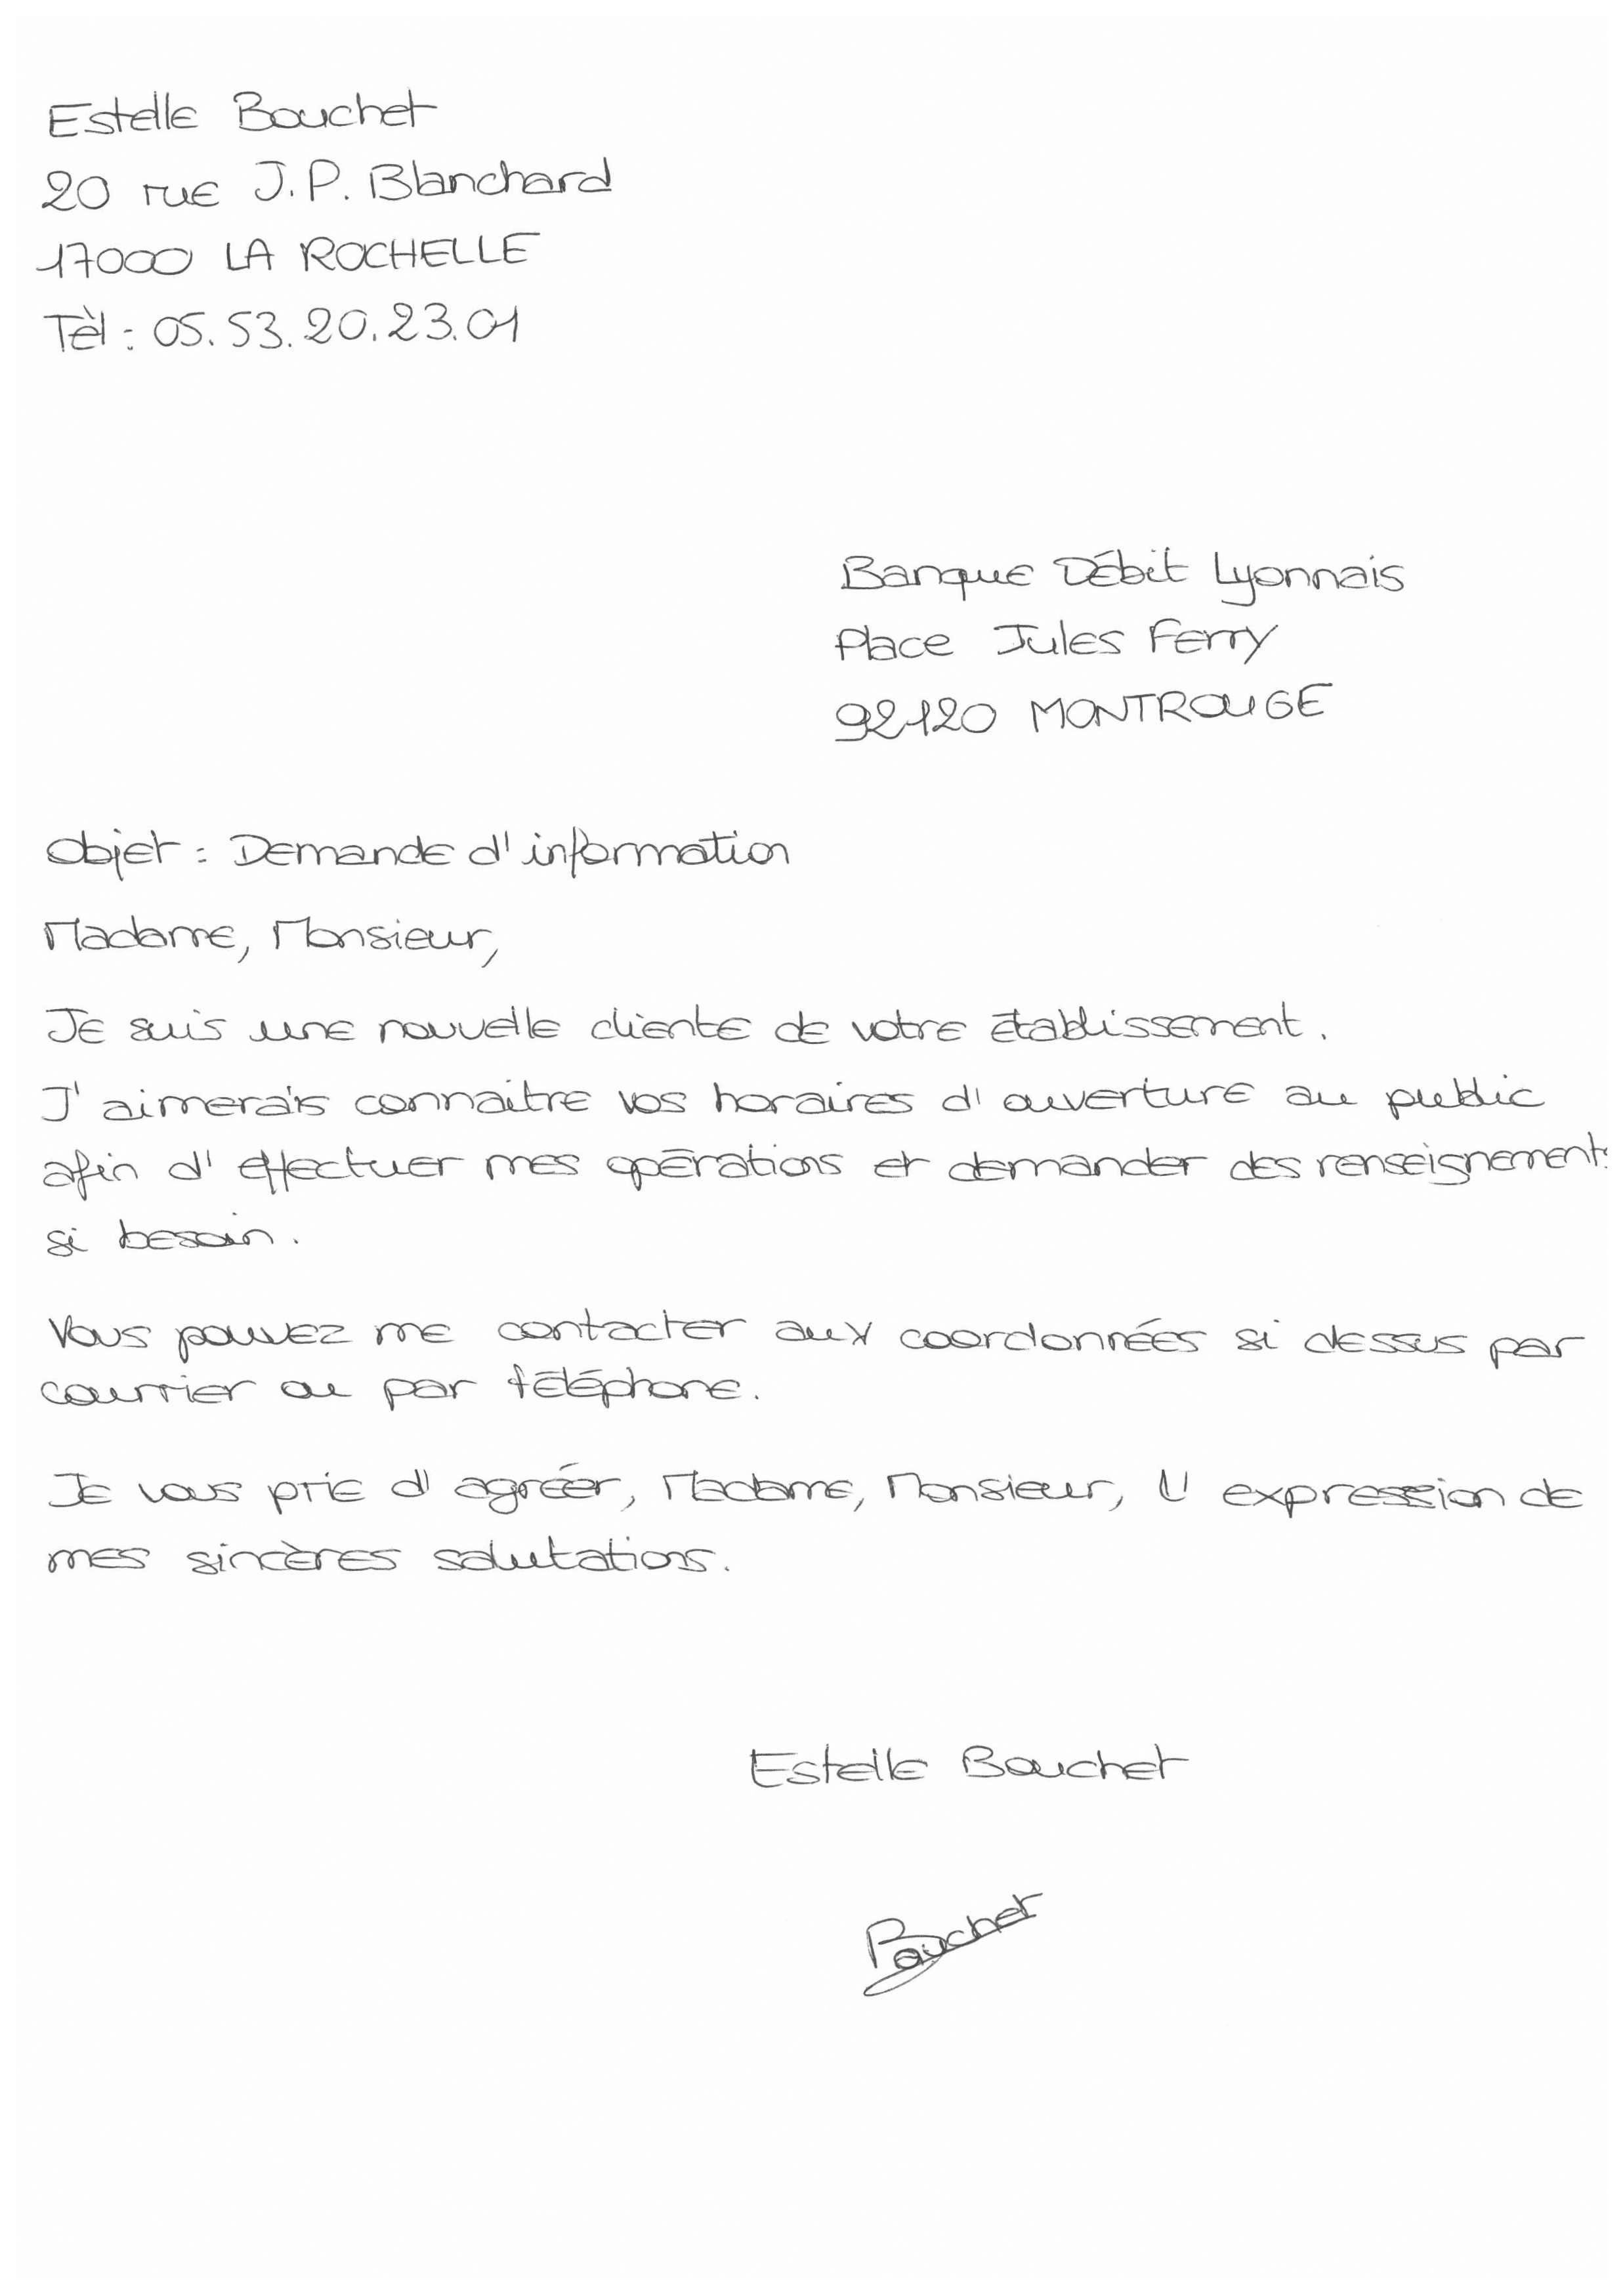 Estelle Bouchet
20 rue J.P. Blanchard
17000 LA ROCHELLE
Tèl : 05.53.20.23.01
Banque Débit Lyonnais
Place Jules Ferry
92120 MONTROUGE
Objet : Demande d'information
Madame, Monsieur,
Je suis une nouvelle cliente de votre établissement.
J'aimerais connaitre vos horaires d'ouverture au public
afin d'effectuer mes opérations et demander des renseignements
si besoin.
Vous pouvez me contacter aux coordonnées si dessus par
courrier ou par téléphone.
Je vous prie d'agréer, Madame, Monsieur, l'expression de
mes sincères salutations.
Estelle Bouchet
Bouchet